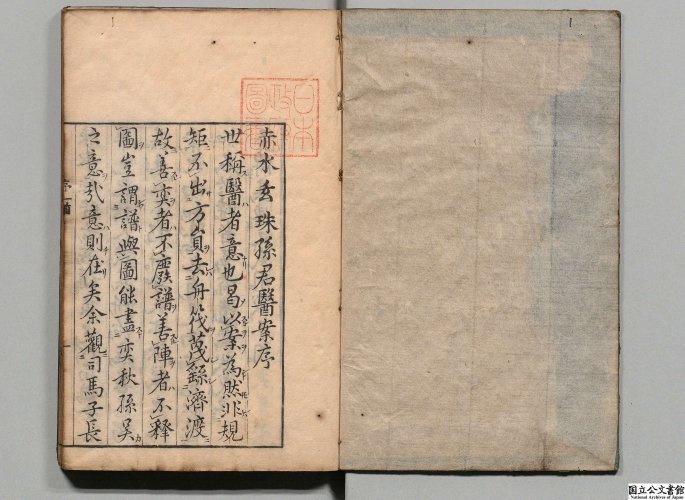 赤水玄珠孫君醫案序
世稱醫者意也曷以案為然非規
矩不出方員去舟筏蔑繇濟渡
故善奕者不廢譜善陣者不釋
圖豈謂譜與圖能盡奕秋孫吳
之意哉意則在矣余觀司馬子長
日本
政府
圖書
国立公文書館
National Archives of Japan